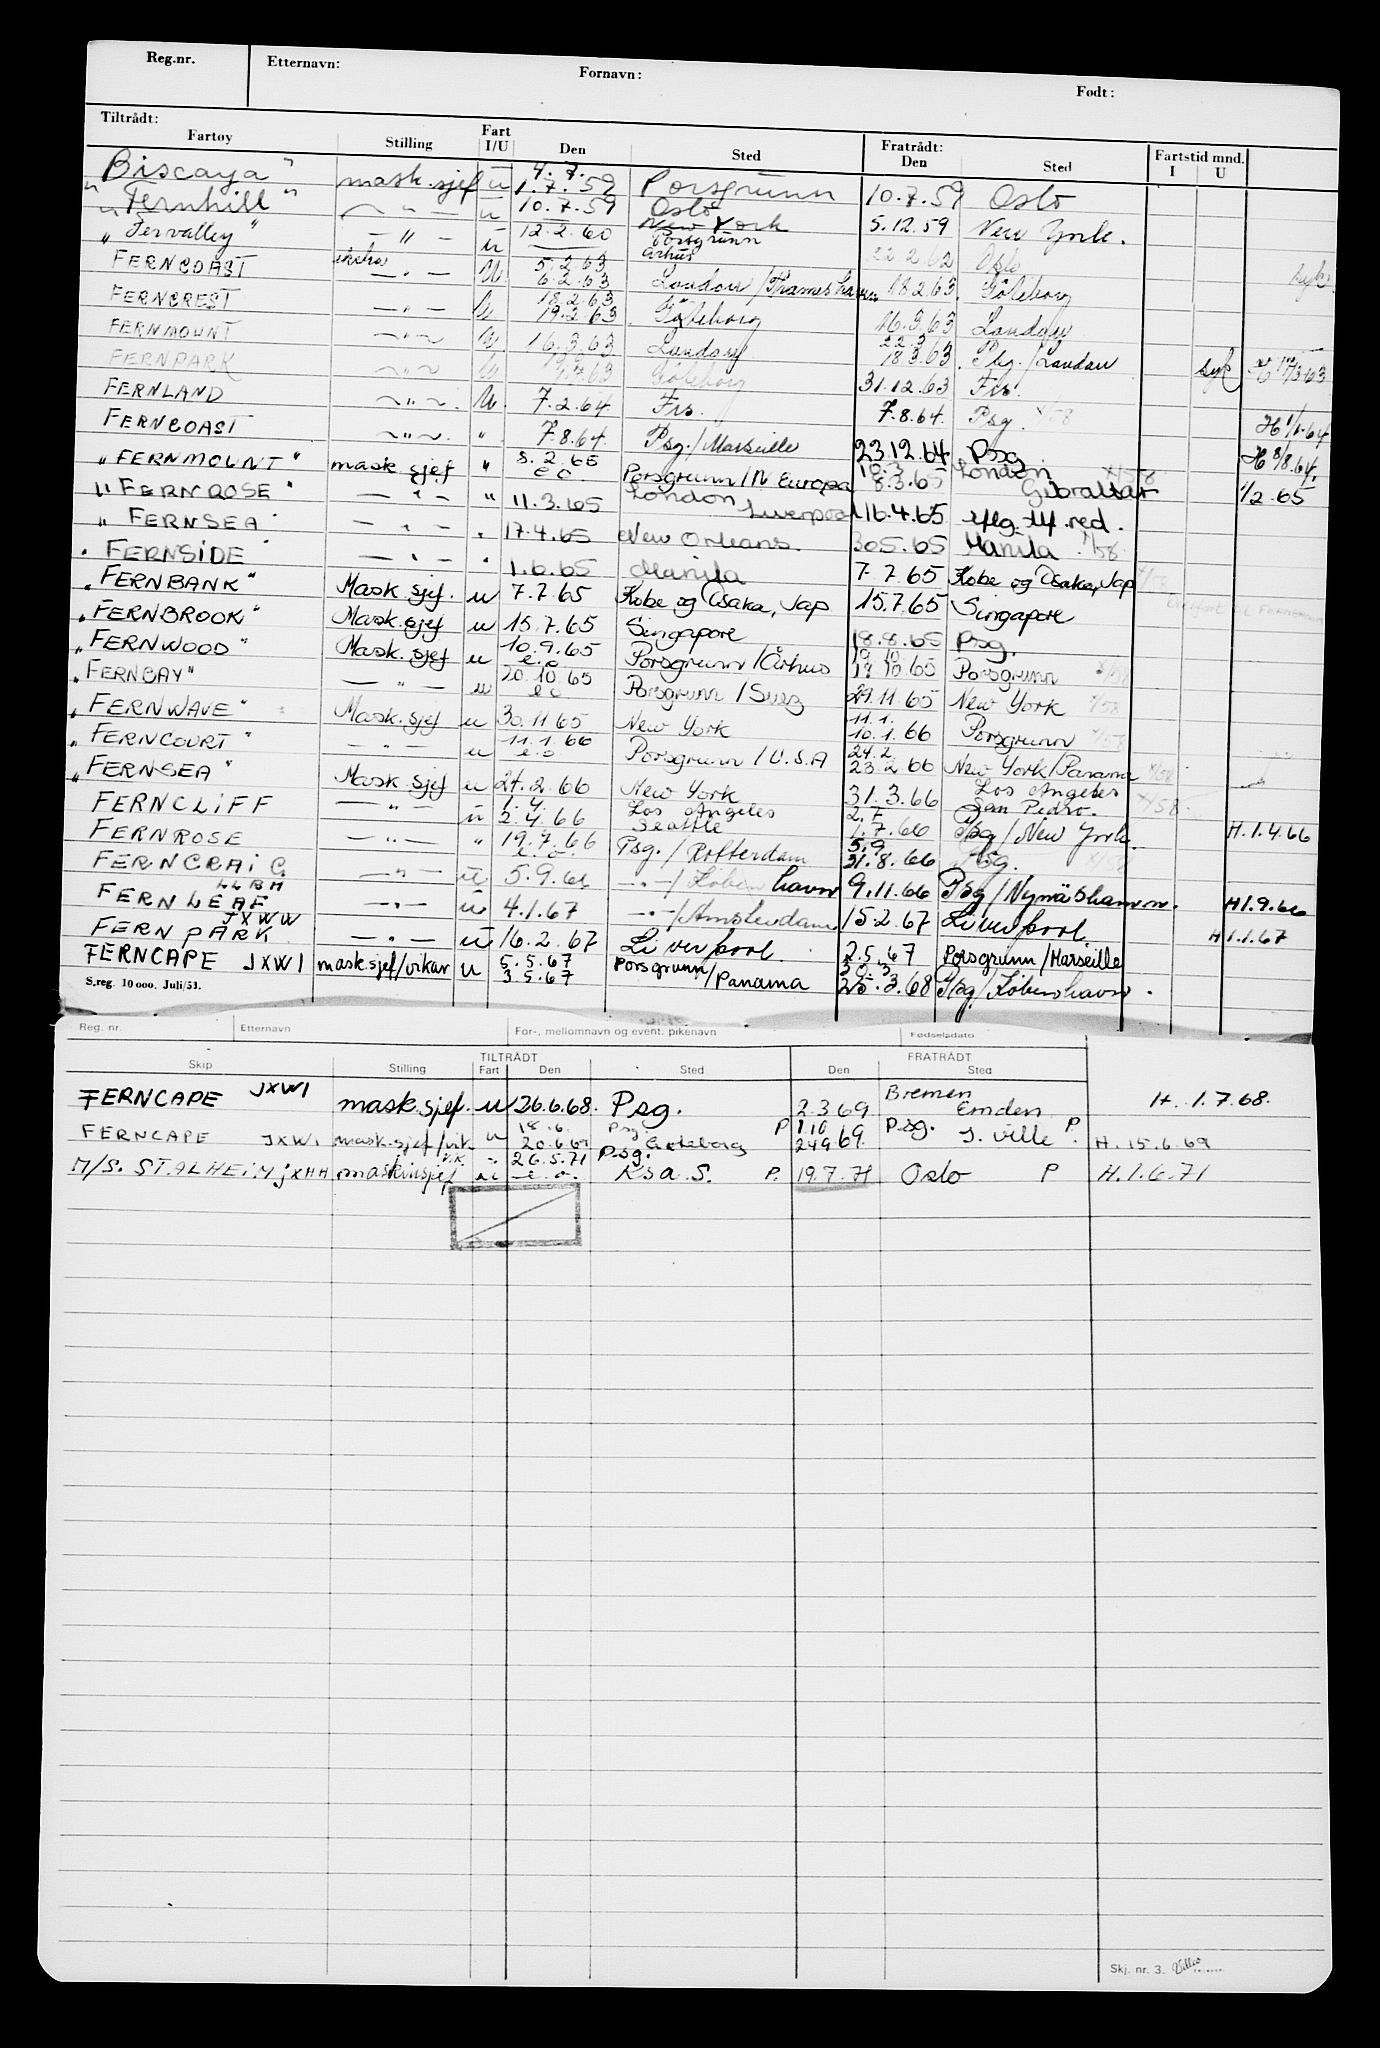 Reg.nr. Etternavn: Fornavn: Født:
Tiltrådt: Fratrådt: Fartstid mnd.
Fartøy Stilling Fart I/U Den Sted Den Sted I U
Biscaya" mask.sjef u 4.7. 1.7.59 Porsgrunn 10.7.59 Oslo
"Fernhill" — " — u 10.7.59 Oslo 5.12.59 New York.
"Fervalley" — " — u 12.2.60 New York Porsgrunn 22.2.62 Oslo
FERNCOAST ekstra — " — U. 5.2.63 6.2.63 Århus London/Thameshaven 18.2.63. Göteborg syk.
FERNCREST — " — U 18.2.63 19.2.63 Göteborg 16.3.63 London
FERNMOUNT — " — U 16.3.63 London 22.3 18.3.63 Pbg./London syk
FERNPARK — " — U 63 Göteborg 31.12.63 Frs.
FERNLAND — " — U. 7.2.64. Frs. 7.8.64. Psg. H 1/1.64
FERNCOAST — " — " 7.8.64. Psg./Marseille 23.12.64 Psg. H 8/8.64.
"FERNMOUNT" mask.sjef " 8.2.65 e.o. Porsgrunn/N Europa 10.3 8.3.65 London Gibraltar 1/58 1/2.65
"FERNROSE" — " — " 11.3.65 London Liverpool 16.4.65
"FERNSEA" — " — " 17.4.65 New Orleans. 30.5.65 Manila 1/58
"FERNSIDE — " — " 1.6.65 Manila 7.7.65 Kobe og Osaka, Jap
"FERNBANK" Mask.sjef. u 7.7.65 Kobe og Osaka, Jap 15.7.65 Singapore
"FERNBROOK" Mask.sjef u 15.7.65 Singapore 18.8.65 Psg.
"FERNWOOD" Mask.sjef u 10.9.65 e.o. Porsgrunn/Århus 19.10. 18.10.65 Porsgrunn
"FERNBAY" — " — u 20.10.65 e.o Porsgrunn/Suez 29.11.65 New York
"FERNWAVE" Mask.sjef u 30.11.65 New York 11.1. 10.1.66 Porsgrunn
"FERNCOURT" — " — u 11.1.66 e.o Porsgrunn/U.S.A 24.2. 23.2.66 New York/Panama
"FERNSEA" Mask.sjef u 24.2.66 New York 31.3.66 Los Angeles San Pedro.
FERNCLIFF — " — u 1.4. 2.4.66 Los Angeles Seattle 2.7 1.7.66 Psg/New York. H.1.4.66
FERNROSE — " — " 19.7.66 e.o Psg./Rotterdam 5.9 31.8.66 Psg.
FERNCRAIG. — " — u 5.9.66 — " —/København 9.11.66 Psg/Nynäshamn. H1.9.66
FERNLEAF LLBH — " — u 4.1.67 — " —/Amsterdam 15.2.67 Liverpool. H1.1.67
FERNPARK JXWW — " — u 16.2.67 Liverpool. 2.5.67 Porsgrunn/Marseille
FERNCAPE JXWI mask.sjef/vikar u 5.5.67 3.5.67 Porsgrunn/Panama 30.3 25.3.68 Psg/København.
S.reg. 10000. Juli/53.
Reg. nr. Etternavn For-, mellomnavn og event. pikenavn Fødselsdato
TILTRÅDT FRATRÅDT
Skip Stilling Fart Den Sted Den Sted
FERNCAPE JXWI mask.sjef. u 26.6.68. Psg. 2.3.69 Bremen Emden H. 1.7.68.
FERNCAPE JXWI mask.sjef/vik. u 18.6. 20.6.69 Psg Göteborg P 1.10 24.9.69. Psg. J.ville P. H. 15.6.69
M/S. STALHEIM JXHH maskinsjef u 26.5.71 e.o. Psg. Ksa. S. P. 19.7.71 Oslo P H.1.6.71
Skj. nr. 3.